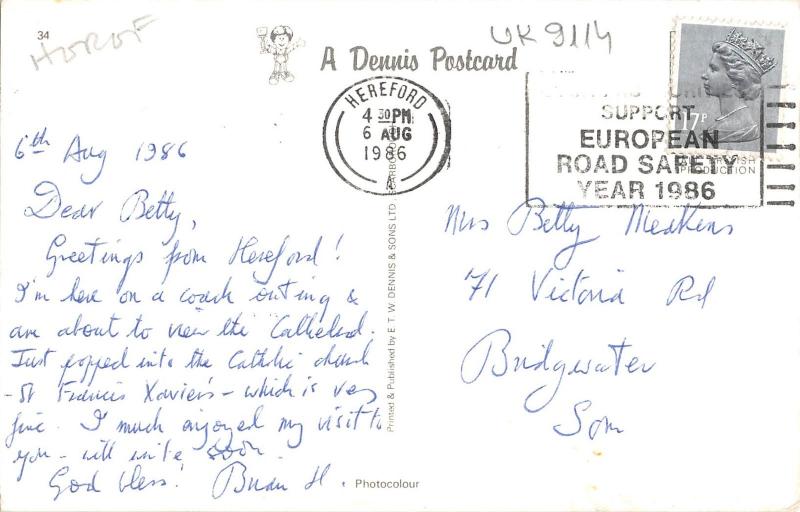 34
HOROF
UK9114
A Dennis Postcard
HEREFORD
4 30PM
6 AUG
1986
A
SUPPORT
EUROPEAN
ROAD SAFETY
YEAR 1986
17P
PRODUCTION
6th Aug 1986
Dear Betty,
Greetings from Hereford!
I'm here on a coach outing &
are about to view the Cathedral.
Just popped into the Catholic church
- St Francis Xavier's - which is very
fine. I much enjoyed my visit to
you - will write soon.
God bless! Brian H.
Printed & Published by E. T. W. DENNIS & SONS LTD
Photocolour
Mrs Betty Meakins
71 Victoria Rd
Bridgwater
Som